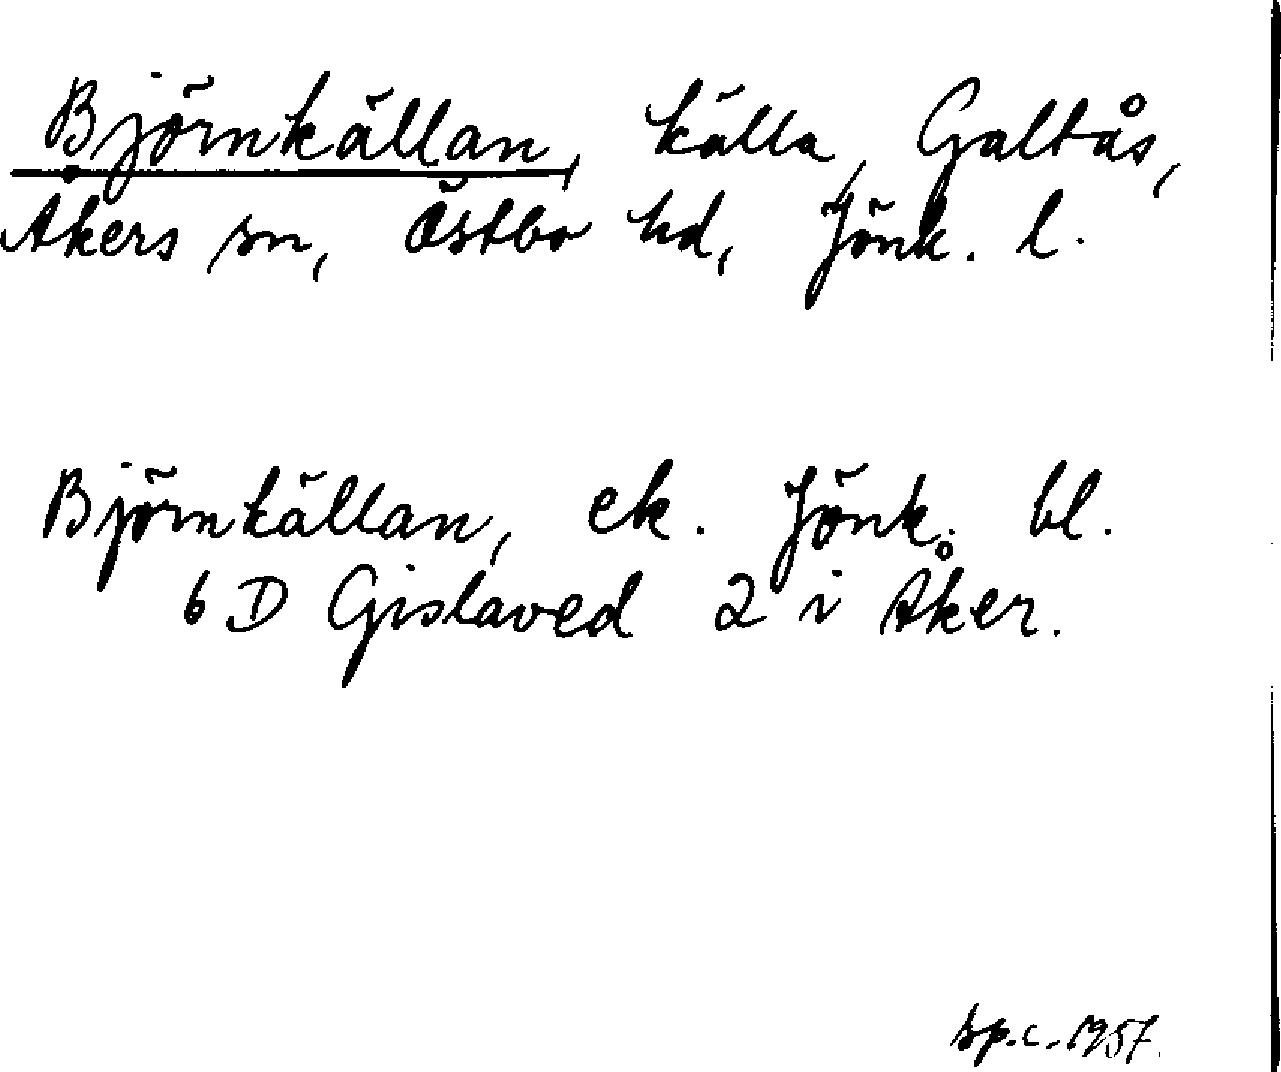 Björnkällan, källa, Galtås,
Åkers sn, Östbo hd, Jönk. l.
Björnkällan, ek. Jönk. bl.
6 D Gislaved 2 i Åker.
sp.c. 1957.